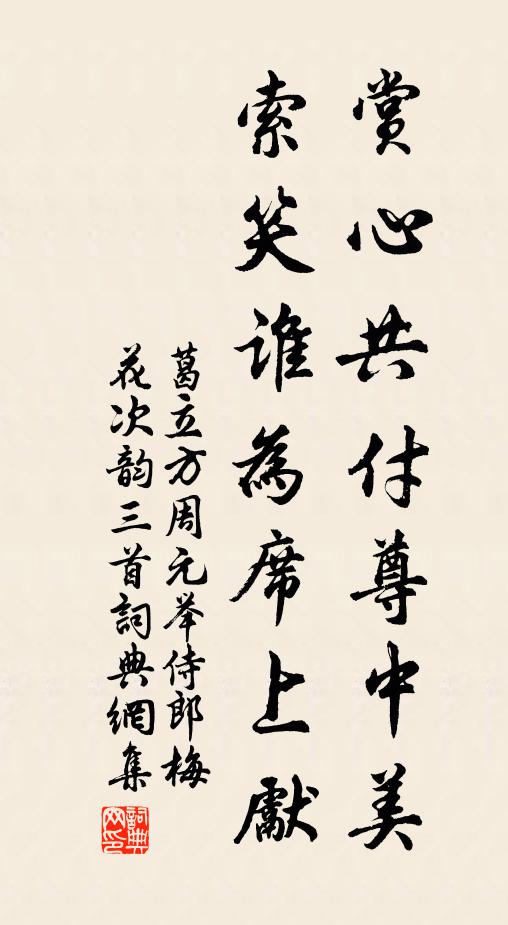 賞心共付尊中美
索笑誰為席上獻
葛立方周元举侍郎梅
花次韵三首詞典網集
詞典
网印